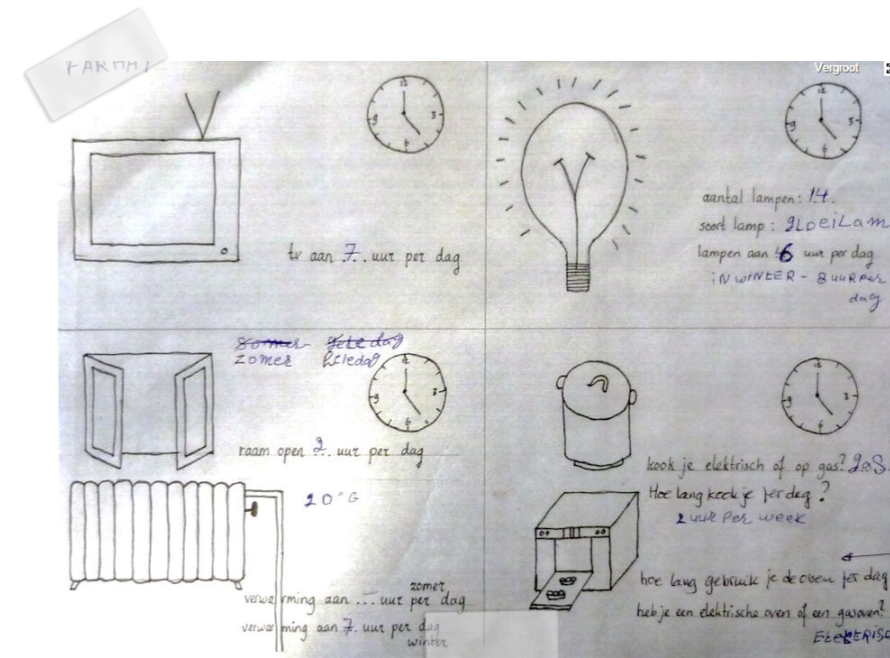 FARMAI
Vergroot
12
3
6
9
tv aan 7.. uur per dag
12
3
9
aantal lampen: 14.
soort lamp: gloeilam
lampen aan 6 uur per dag
in winter - 8 uur per
dag
zomer heledag
12
3
6
raam open 2.. uur per dag
20°C
zomer
verwarming aan ... uur per dag
verwarming aan 7. uur per dag
winter
12
3
6
9
kook je elektrisch of op gas? gas.
Hoe lang kook je per dag?
2 uur per week
hoe lang gebruik je de oven per dag
heb je een elektrische oven of een gasoven?